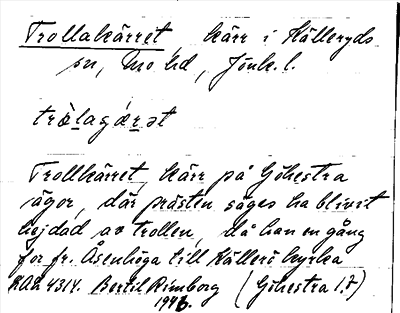 Trollakärret, kärr i Källeryds
sn, Mo hd, Jönk. l.
trò̀lagǽrət
Trollkärret, kärr på Göhestra
ägor, där prästen säges ha blivit
hejdad av trollen, då han en gång
for fr. Åsenhöga till Källerö kyrka
KAA 4314. Bertil Rimborg (Göhestra 1.7)
1946.